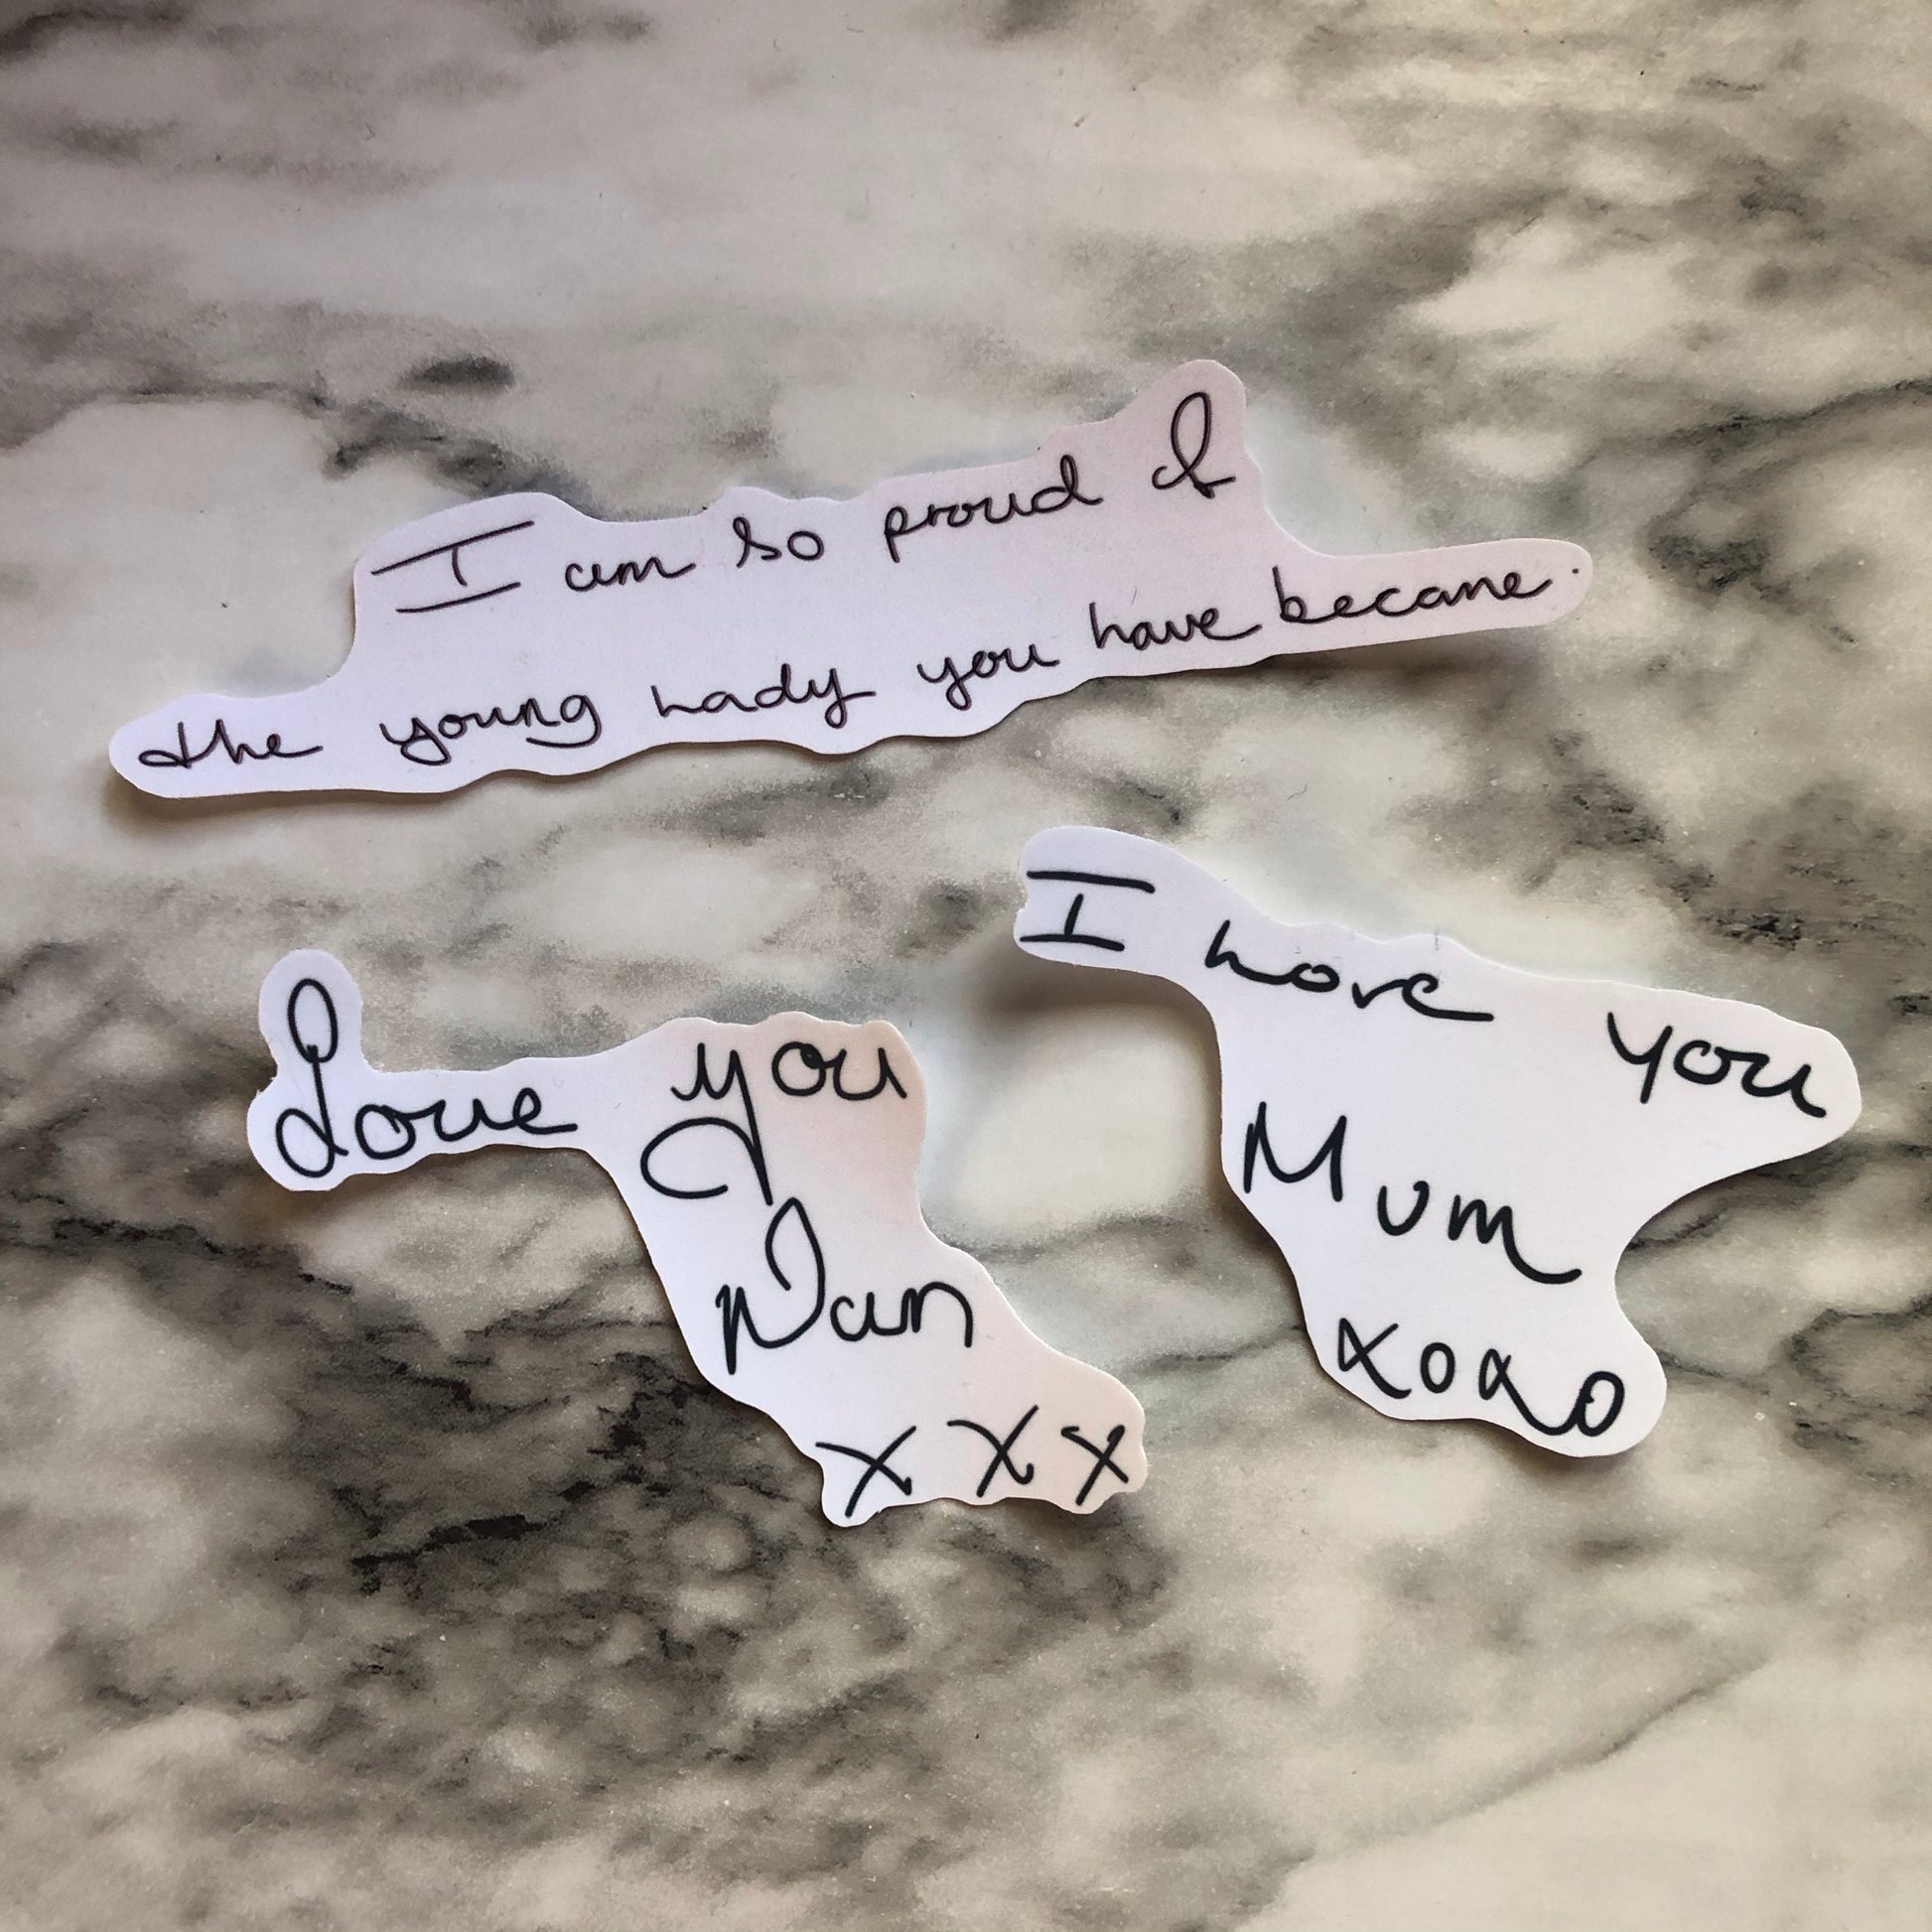 I am so proud of
the young Lady you have became.
Love you
Nan
x x x
I Love you
Mum
xoxo